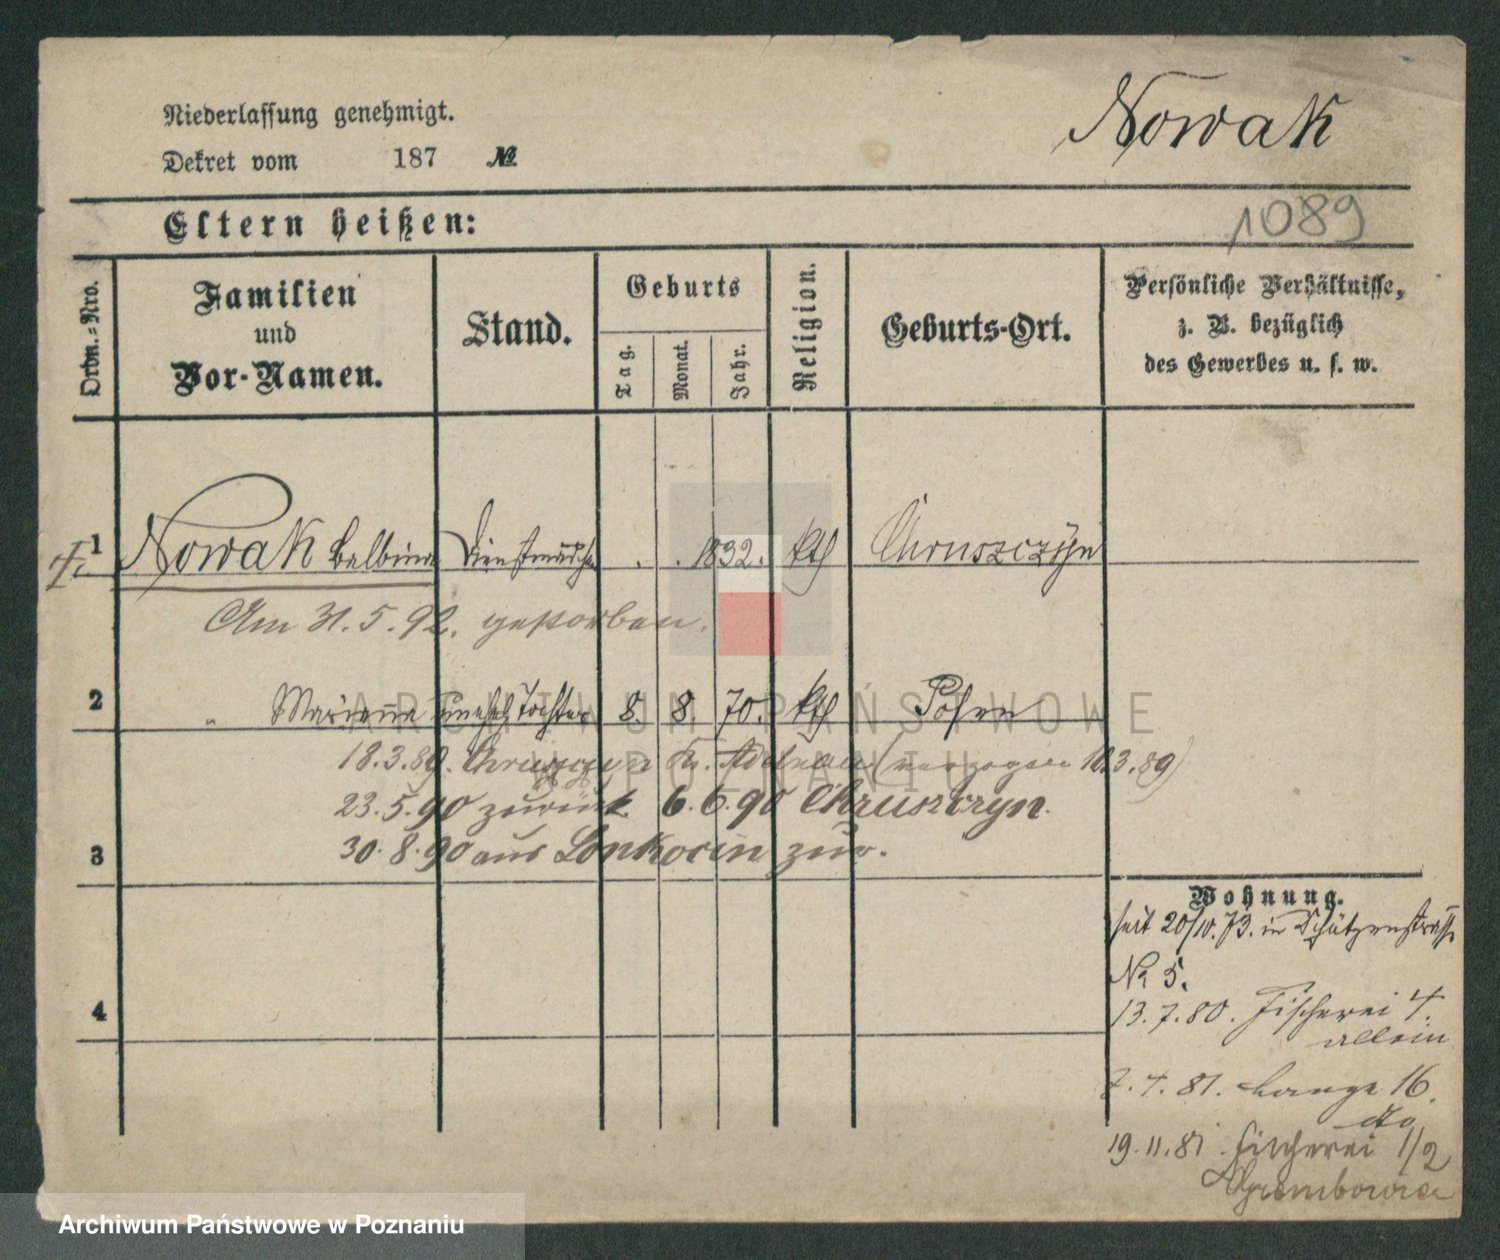 Niederlassung genehmigt.
Dekret vom 187 №
Nowak
Eltern heißen:
1089
Ordn.=Nro.
Familien
und
Vor-Namen.
Stand.
Geburts
Tag.
Monat.
Jahr.
Religion.
Geburts-Ort.
Persönliche Verhältnisse,
z. B. bezüglich
des Gewerbes u. s. w.
1 Nowak Balbina Dienstmädchen . . 1832. kth Chruszczyn
Am 31.5.92. gestorben.
2 " Marianna unehel Tochter 8. 8. 70. kth Posen
18.3.89. Kr. Adelnau (verzogen 18.3.89)
23.5.90 zurück. 6.6.90 Chruszczyn.
3 30.8.90 aus Lonkocin zur.
Wohnung.
seit 20/10.73. in Schützenstrasse
No 5.
13.7.80. Fischerei 4.
allein
4
7.4.81. Lange 16.
do
19.11.81. Fischerei 1/2
ARCHIWUM PAŃSTWOWE
W POZNANIU
Archiwum Państwowe w Poznaniu